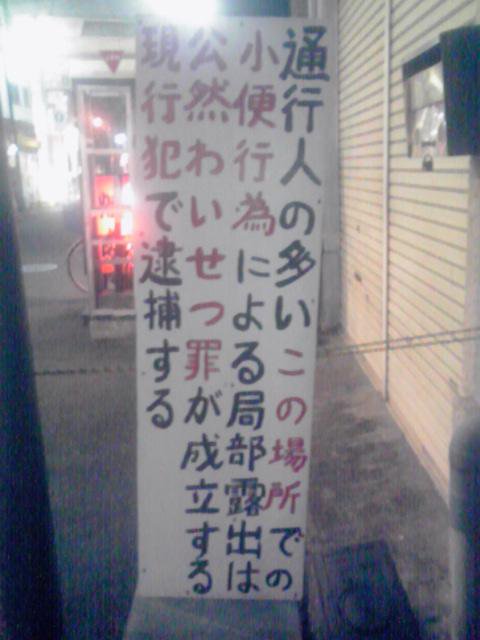 通行人の多いこの場所での
小便行為による局部露出は
公然わいせつ罪が成立する
現行犯で逮捕する